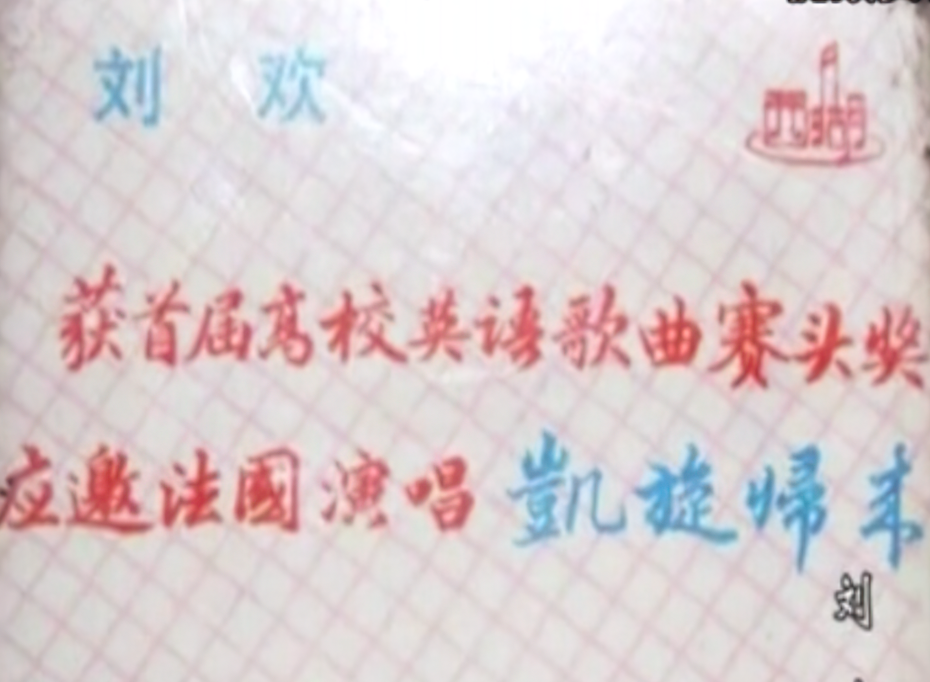 刘 欢
西湖
获首届高校英语歌曲赛头奖
应邀法國演唱 凱旋帰来
刘